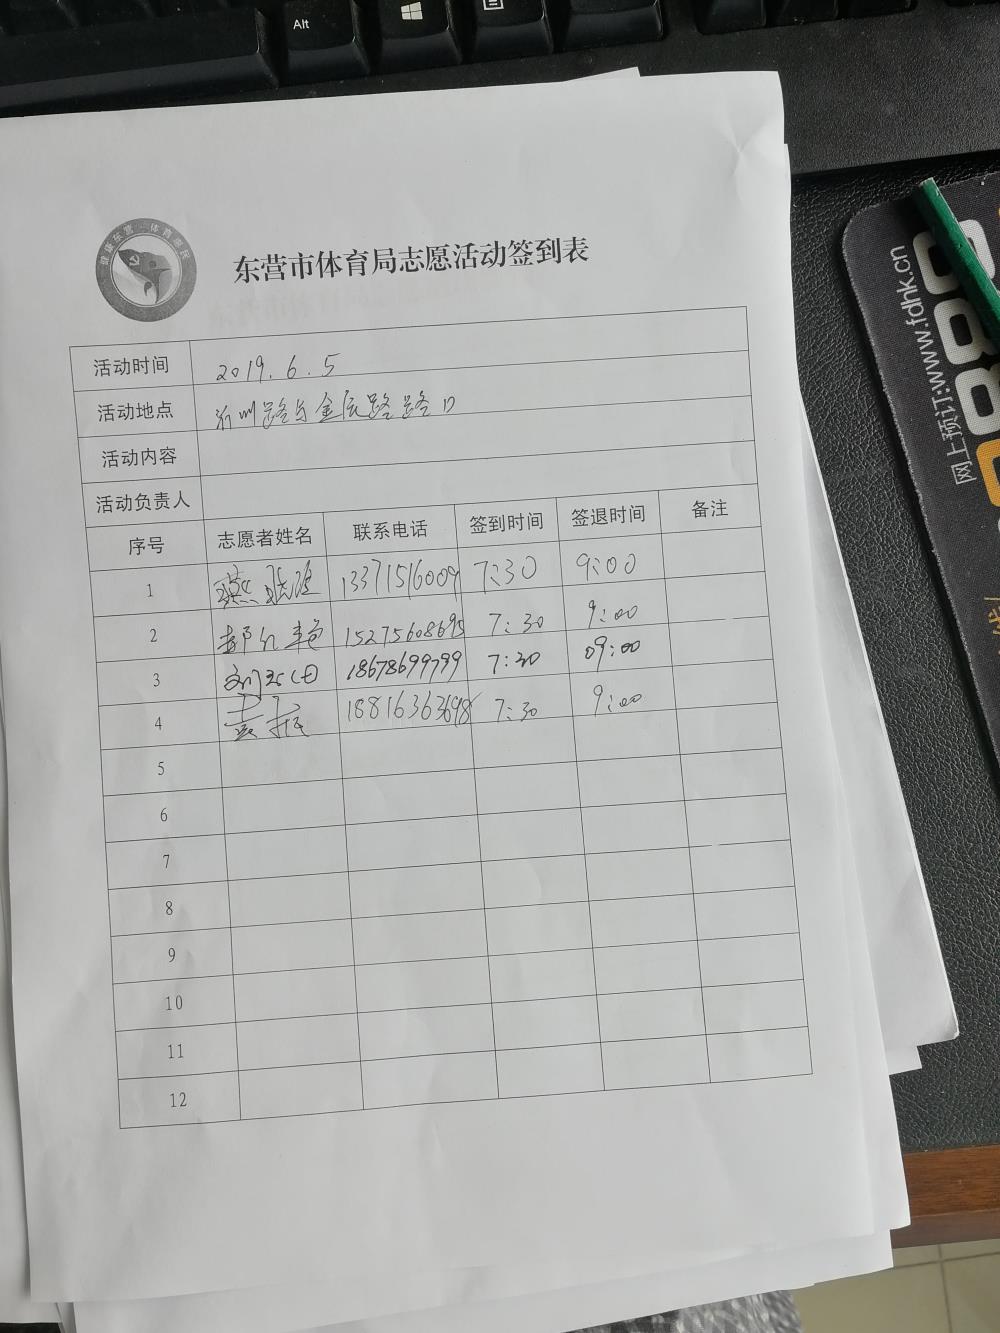 Alt
健康东营 体育惠民
东营市体育局志愿活动签到表
活动时间 2019.6.5
活动地点 沂州路与金辰路路口
活动内容
活动负责人
序号 志愿者姓名 联系电话 签到时间 签退时间 备注
1 13371516009 7:30 9:00
2 15275608695 7:30 9:00
3 18678699799 7:30 09:00
4 18816363698 7:30 9:00
5
6
7
8
9
10
11
12
网上预订:www.fdhk.cn